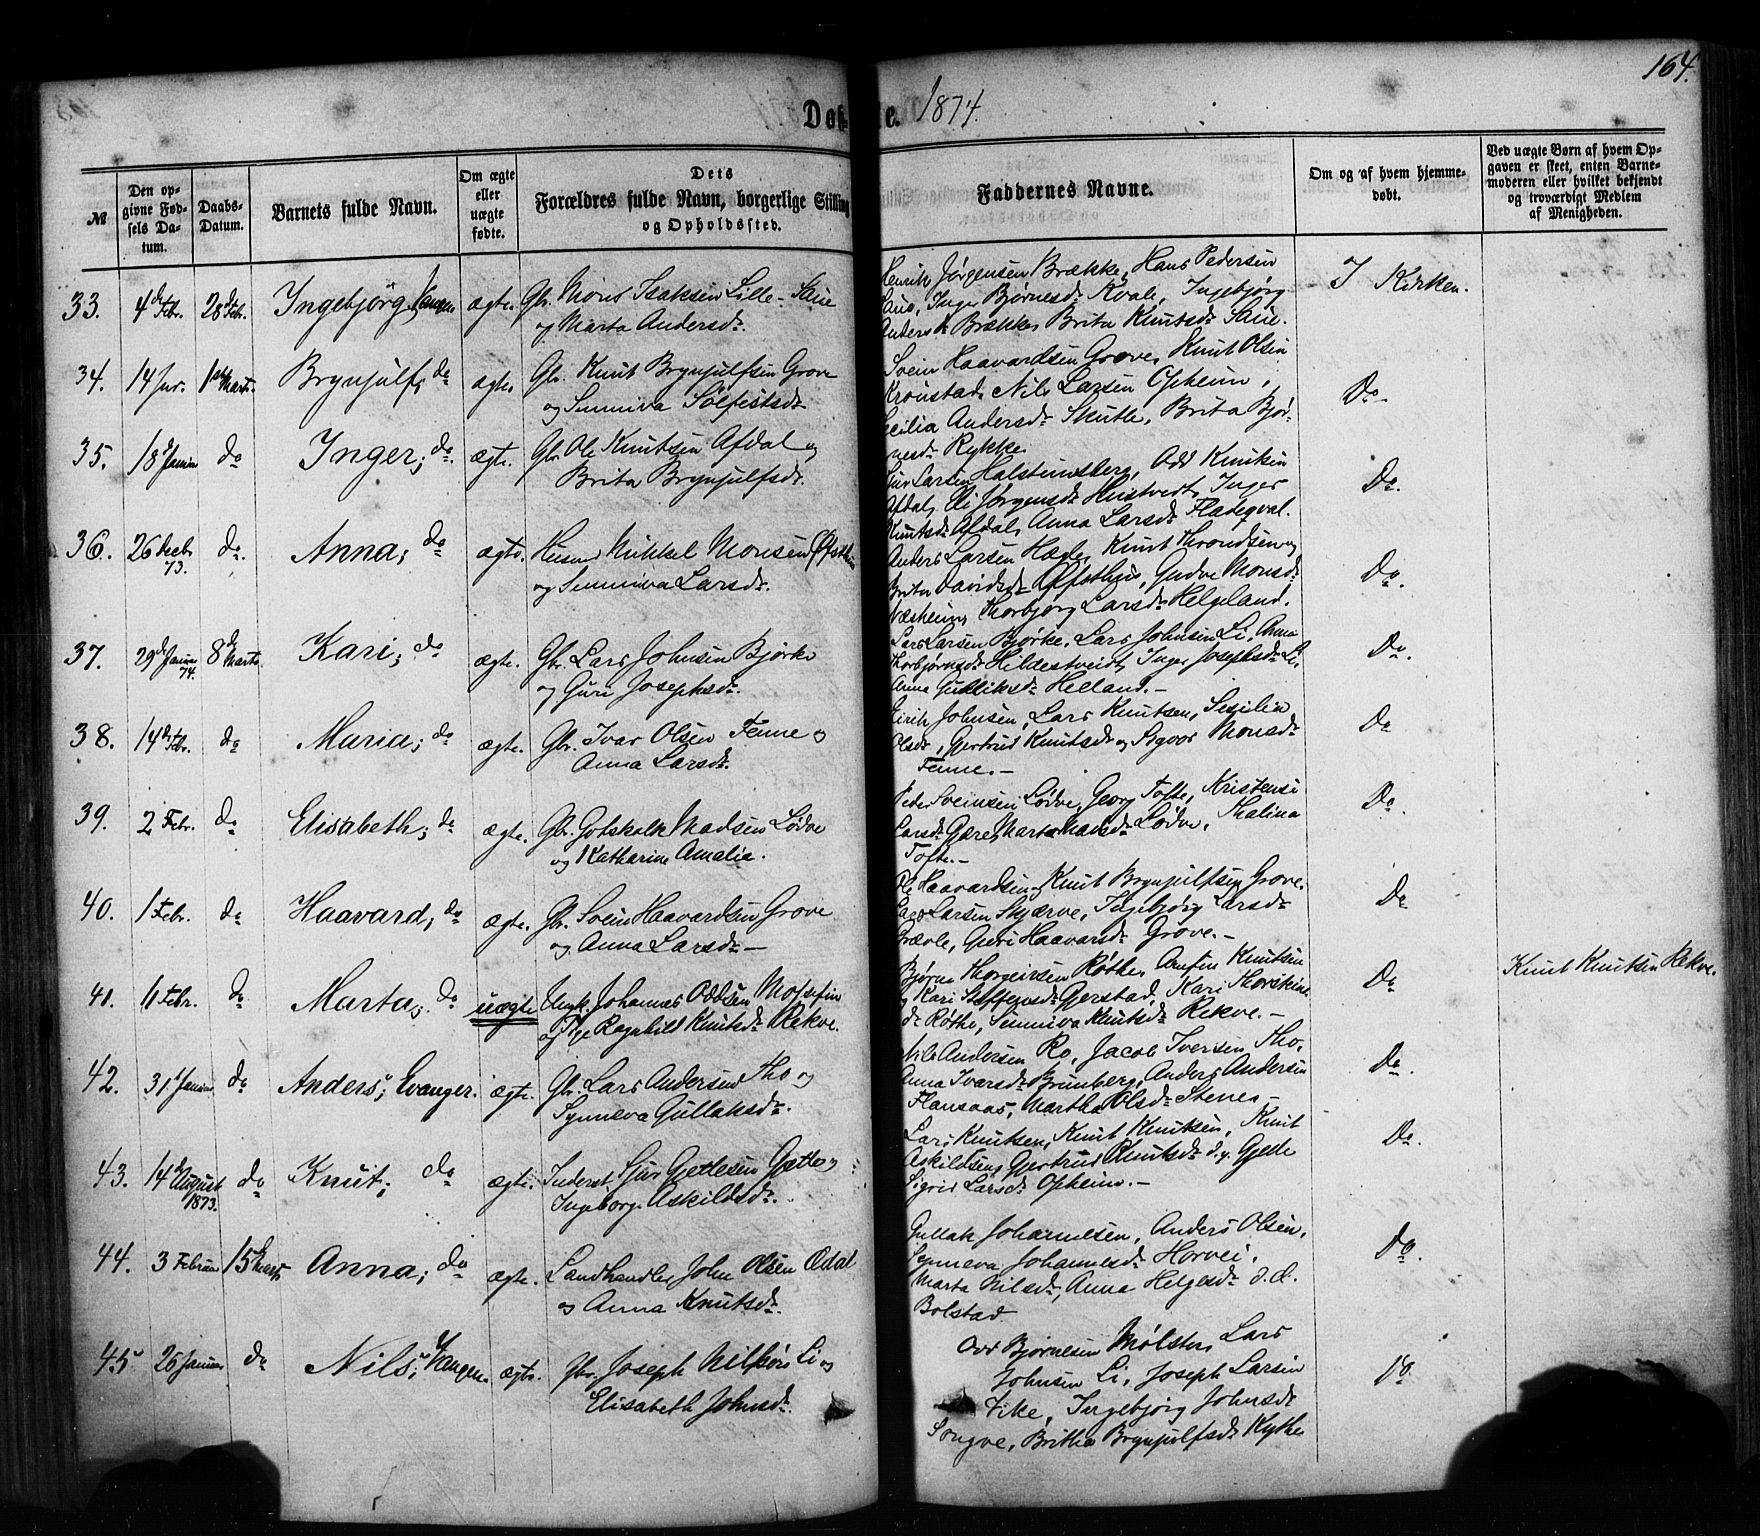 164.
Døbte. 1874.
№
Den opgivne Fødsels Datum.
Daabs-Datum.
Barnets fulde Navn.
Om ægte eller uægte fødte.
Dets Forældres fulde Navn, borgerlige Stilling og Opholdssted.
Faddernes Navne.
Om og af hvem hjemmedøbt.
Ved uægte Børn af hvem Opgaven er skeet, enten Barnemoderen eller hvilket bekjendt og troværdigt Medlem af Menigheden.
33. 4de Febr. 28de Febr. Ingebjørg, Vangen ægte. Gbr. Mons Isaksen Lille-Saue
og Marta Andersdr.
Henrik Jørgensen Brække, Hans Pedersen
Saue, Inger Bjørnesdr Kvale, Ingebjørg
Andersdr Brække, Brita Knutsdr Saue.
I Kirken.
34. 14 Jnr. 1ste Marts Brynjulf, do ægte. Gbr. Knut Brynjulfsen Grove
og Sunniva Sølfestsdr
Svein Haavardsen Grove, Knut Olsen
Kronstad, Nils Larsen Opheim,
Cecilia Andersdr Skutle, Brita Bjør-
nesdr Rykke
Do
35. 18de Januar do Inger, do ægte. Gbr. Ole Knutsen Afdal og
Brita Brynjulfsdr.
Larsen Halsteinsberg, Odd Knutsen
Afdal, Eli Jørgensdr Hustvedt, Inger
Knutsdr Afdal, Anna Larsdr Flateqval.
Do.
36. 26 Decbr 73. do. Anna, do ægte. Husmd Mikkel Monsen
og Sunniva Larsdr.
Anders Larsen Hægle, Knut Throndsen og
Brita Davidsdr Afsthus, Gudve Monsdr
Væsheim, Thorbjørg Larsdr Helgeland.
Do.
37. 29de Januar 74. 8de Marts Kari, do ægte. Gbr. Lars Johnsen Bjørke
og Guri Josephsdr.
Lars Larsen Bjørke, Lars Johnsen Li, Anna
Thorbjørnsdr Hildestveit, Inger Josephsdr Li,
Anna Gulliksdr Helland.-
Do.
38. 14de Febr. do Maria, do ægte. Gbr. Ivar Olsen Fenne og
Anna Larsdr.
Eirik Johnsen, Lars Knutsen, Sesilia
Olsdr, Gertrud Knutsdr og Sygvor Monsdr
Fenne.-
Do
39. 2 Febr. do Elisabeth, do ægte. Gbr. Gotskalk Madsen Lødve
og Katharine Amalia.
Peder Sveinsen Lødve, Georg Tofte, Kristensi
Larsdr Gjære, Marta Madsdr Lødve, Thalina
Tofte.-
Do.
40. 1 Febr. do Haavard, do ægte. Gbr. Svein Haavardsen Grove
og Anna Larsdr-
Ole Haavardsen, Knut Brynjulfsen Grove,
Lars Larsen Skjerve, Ingebjørg Larsdr
Græve, Guri Haavarsdr Grove.-
Do
41. 11 Febr. do Marta, do uægte Ungk. Johannes Oddsen Mossefin
og Pige Ragnhild Knutsdr Rekve.
Bjørne Thorgeirsen Røthe, Arnfin Knutsen
og Kari Steffensdr Gjerstad, Kari Thorskins-
dr Røthe, Sunniva Knutsdr Rekve.-
Do
Knut Knutsen Rekve.
42. 31 Januar do Anders, Evanger. ægte. Gbr. Lars Andersen Tho og
Synneva Gullaksdr.
Nils Andersen Ro, Jacob Iversen Tho,
Anna Ivarsdr Grünberg, Anders Andersen
Flansaas, Martha Olsdr Stenes-
Do.
43. 14de August 1873. do Knut, do ægte. Inderst. Sjur Gjetlesen Gjetle og
Ingeborg Askildsdr.
Lars Knutsen, Knut Knutsen, Knut
Askildsen, Gjertrud Knutsdr d.y. Gjetle
Sigrid Larsdr Opheim.-
Do.
44. 3 Februar 15de Marts Anna, do ægte. Landhandler John Olsen Ødal
og Anna Knutsdr.
Gullak Johannesen, Anders Olsen,
Synneva Johannesdr Horvei,
Marta Nilsdr, Anna Helgesdr d.æ.
Bolstad
Do.
45 26 Januar do Nils, Vangen ægte. Gbr. Joseph Nilsøn Li og
Elisabeth Johnsdr.
Odd Bjørnesen Mølster, Lars
Johnsen Li, Joseph Larsen
Tike, Ingebjørg Johnsdr
Songve, Britha Brynjulfsdr Kythe
Do